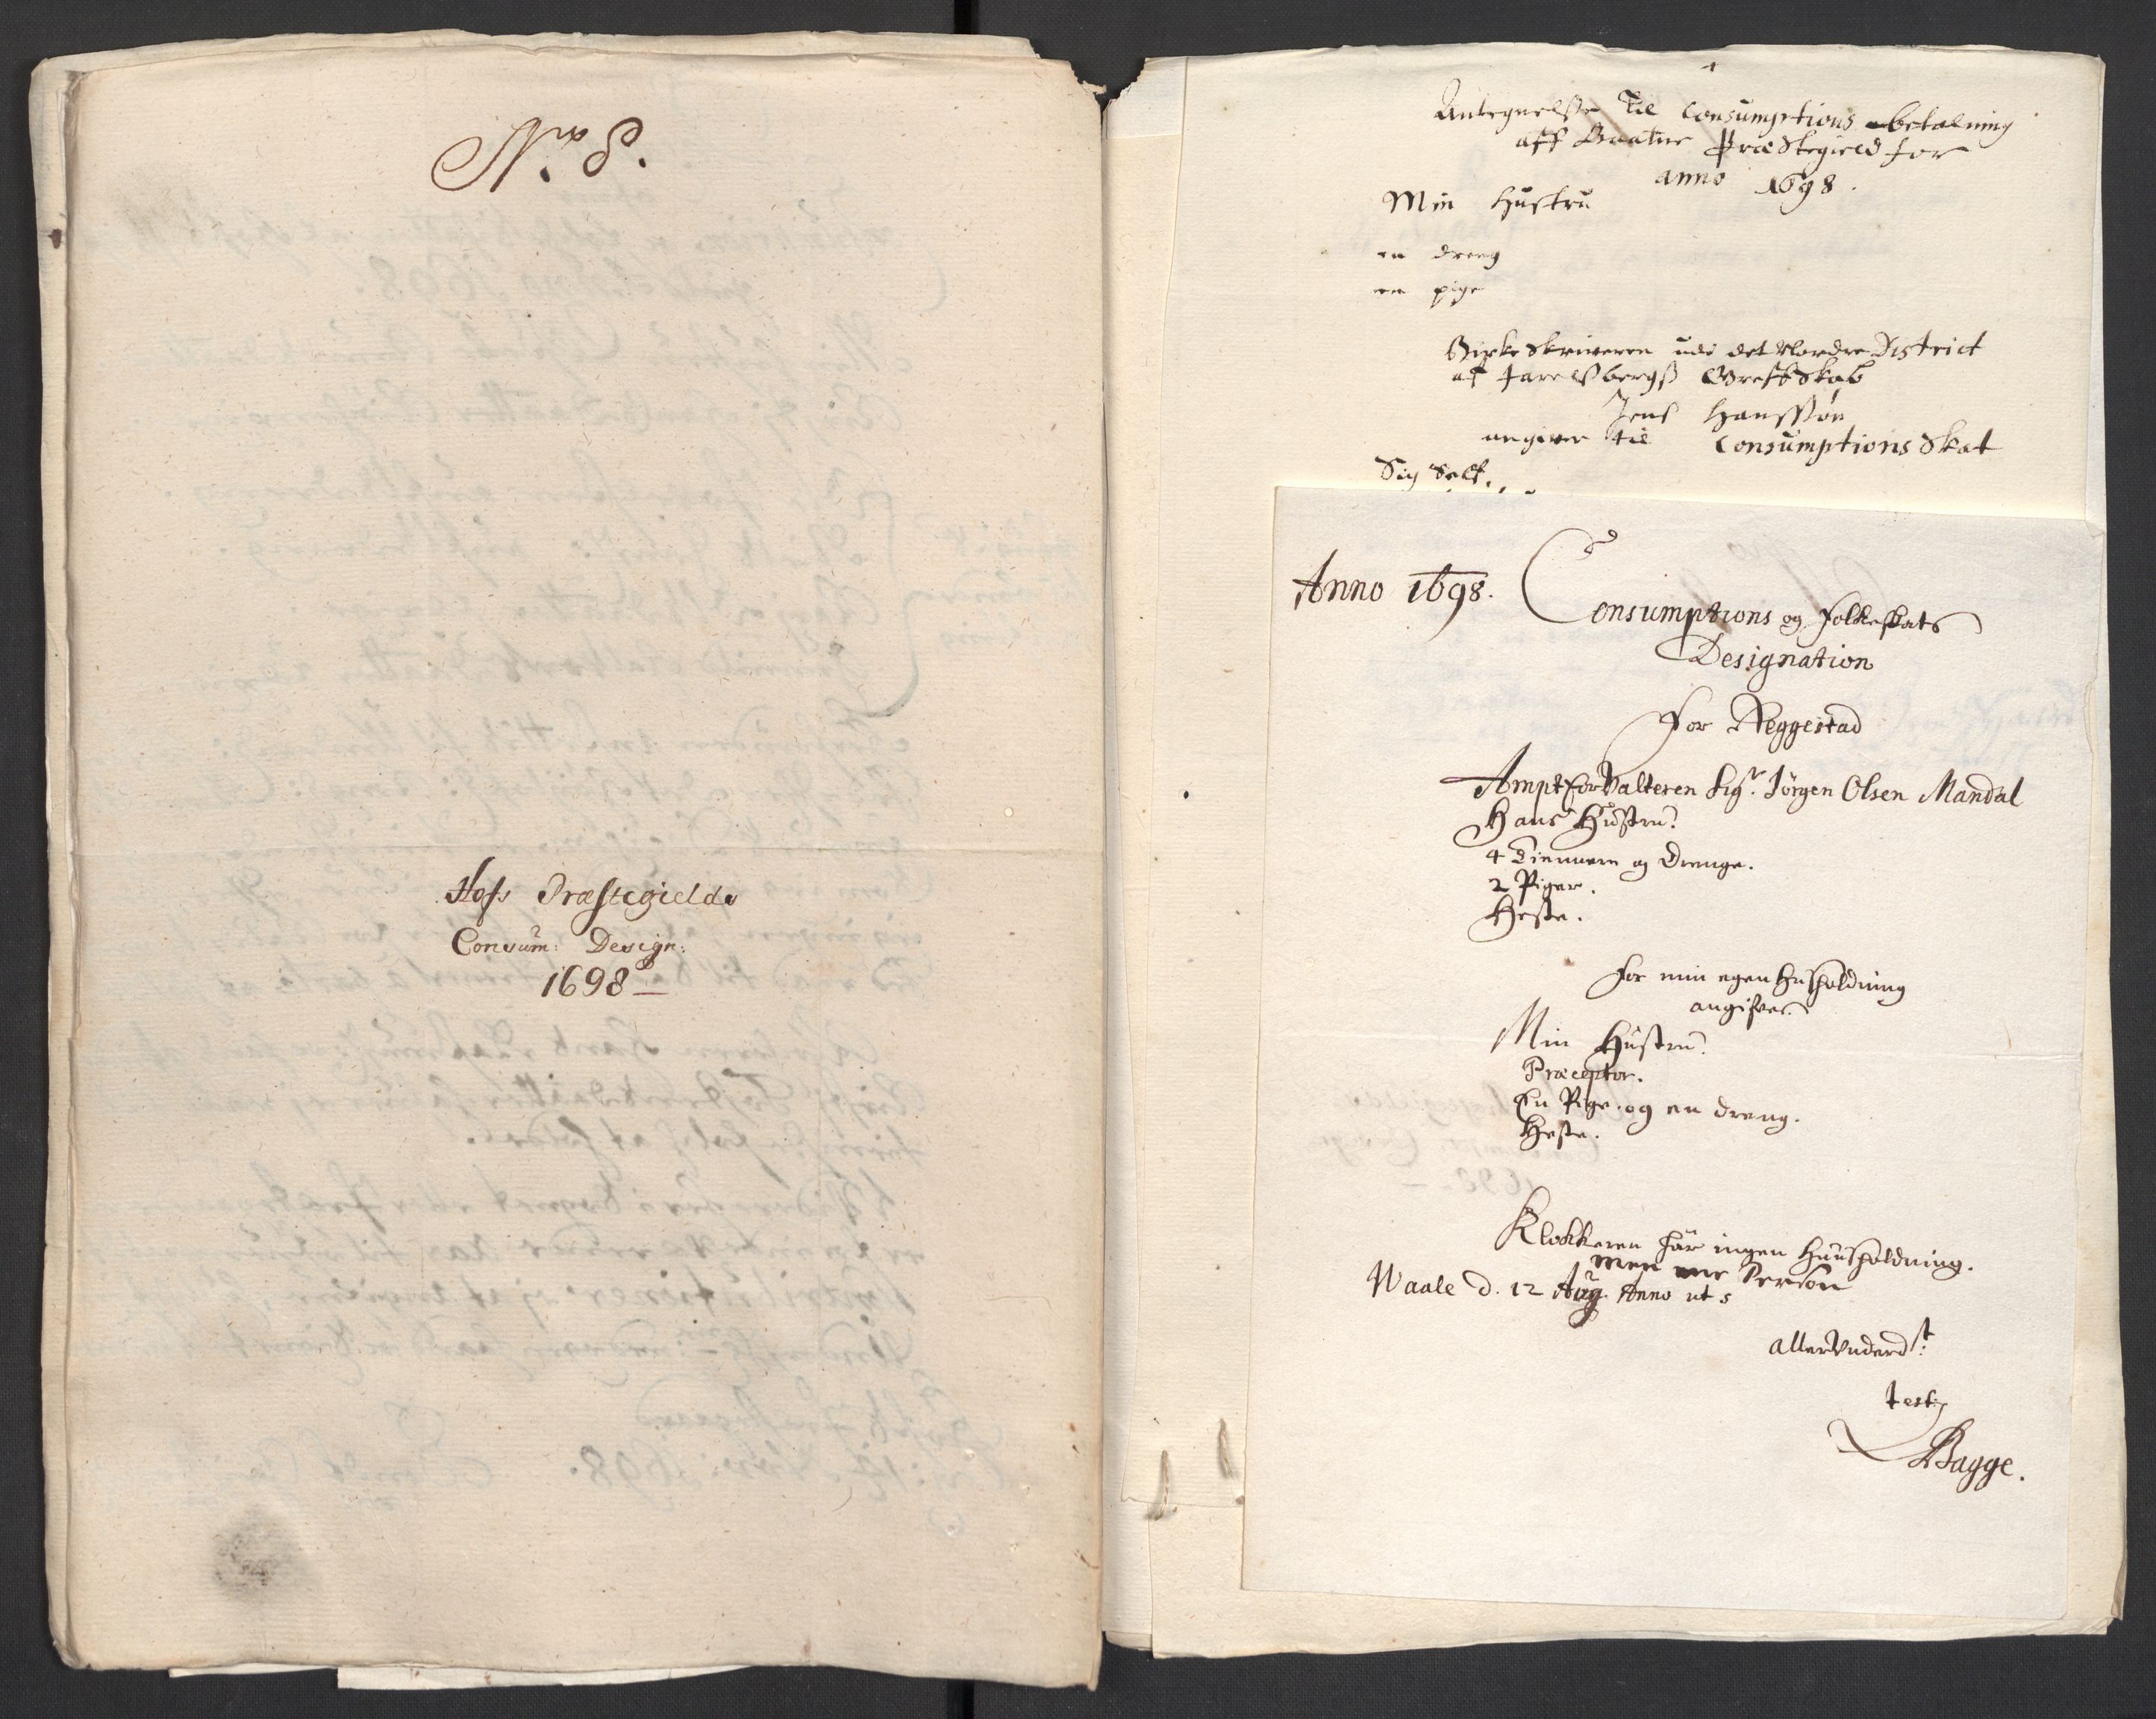 No. 8.
Hofs Præstegields
Consum: Design:
1698
Antegnelsse Til Consumptions betalning
aff Præstegield for
anno 1698.
Min Hustru
en dreng
en pige
Birkeskriveren udi det Nordre District
af Jarelsbergs Grefskab
Jens Hanssøn
angiver til Consumptions Skat
Sig Self
Anno 1698. Consumptions og Folkeskats
Designation
For Reggestad
Amptforvalteren Sigr. Jörgen Olsen Mandal
Hans Hustru.
4 Tiennere og Drenge.
2 Piger.
Heste.
For min egen Husholdning
angifves
Min Hustru.
Præceptor.
En Pige og en dreng.
Heste.
Klokkeren har ingen Huusholdning.
men Person
Waale d. 12 Aug. Anno ut s
allerunderdst:
test:
Bagge.